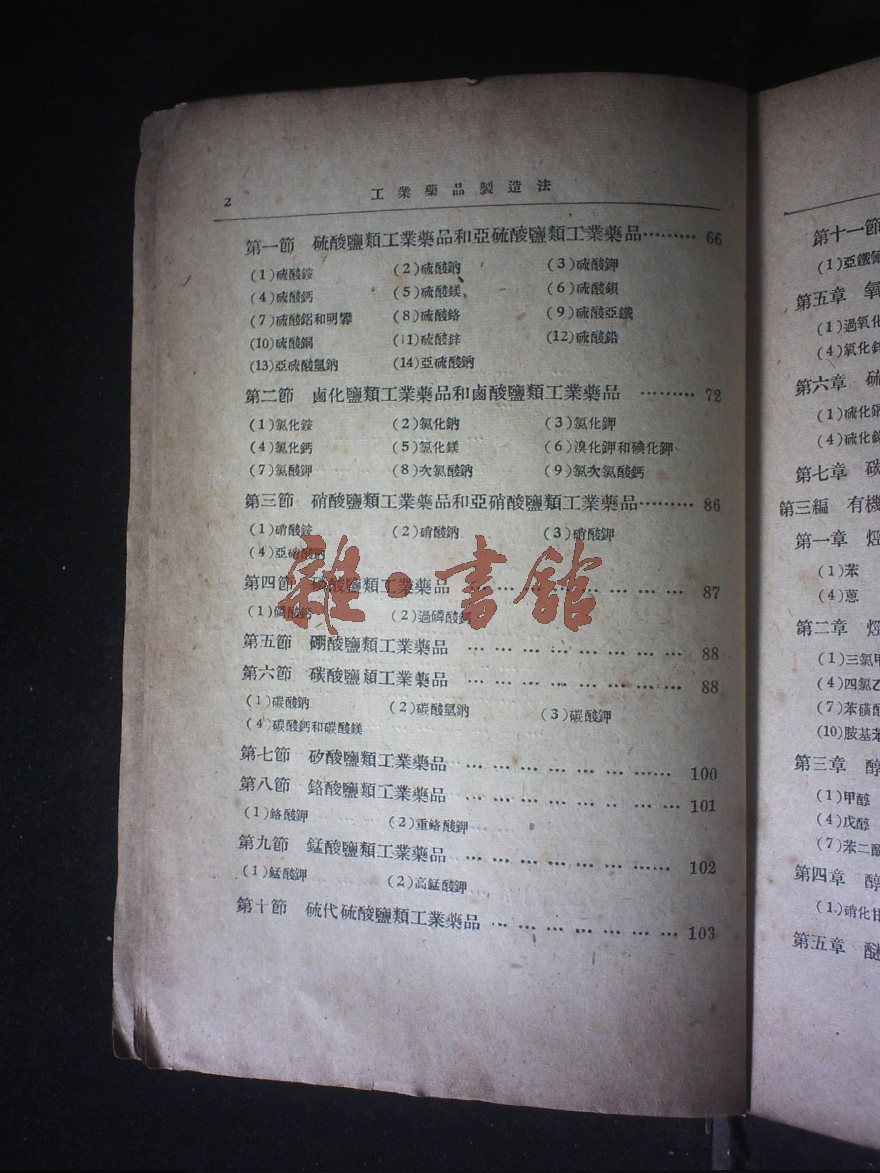 2
工業藥品製造法
第一節 硫酸鹽類工業藥品和亞硫酸鹽類工業藥品……… 66
(1)硫酸銨 (2)硫酸鈉 (3)硫酸鉀
(4)硫酸鈣 (5)硫酸鎂 (6)硫酸鋇
(7)硫酸鋁和明礬 (8)硫酸鉻 (9)硫酸亞鐵
(10)硫酸銅 (11)硫酸鋅 (12)硫酸鉛
(13)亞硫酸氫鈉 (14)亞硫酸鈉
第二節 鹵化鹽類工業藥品和鹵酸鹽類工業藥品 ……… 72
(1)氯化銨 (2)氯化鈉 (3)氯化鉀
(4)氯化鈣 (5)氯化鎂 (6)溴化鉀和碘化鉀
(7)氯酸鉀 (8)次氯酸鈉 (9)氯次氯酸鈣
第三節 硝酸鹽類工業藥品和亞硝酸鹽類工業藥品……… 86
(1)硝酸銨 (2)硝酸鈉 (3)硝酸鉀
(4)亞硝酸鈉
第四節 磷酸鹽類工業藥品 … … … … … … … … 87
(1)磷酸鈣 (2)過磷酸鈣
第五節 硼酸鹽類工業藥品 … … … … … … … … … 88
第六節 碳酸鹽類工業藥品 … … … … … … … … … 88
(1)碳酸鈉 (2)碳酸氫鈉 (3)碳酸鉀
(4)碳酸鈣和碳酸鎂
第七節 矽酸鹽類工業藥品 … … … … … … … …… 100
第八節 鉻酸鹽類工業藥品 … … … … … … … … 101
(1)鉻酸鉀 (2)重鉻酸鉀
第九節 錳酸鹽類工業藥品 … … … … … … … …… 102
(1)錳酸鉀 (2)高錳酸鉀
第十節 硫代硫酸鹽類工業藥品 … … … … … … … 103
雜·書館
第十一節
(1)亞鐵
第五章 氧
(1)過氧化
(4)氧化
第六章 硫
(1)硫化
(4)硫化
第七章 碳
第三編 有機
第一章 烴
(1)苯
(4)蒽
第二章 烴
(1)三氯甲
(4)四氯乙
(7)苯磺酸
(10)胺基苯
第三章 醇
(1)甲醇
(4)戊醇
(7)苯二酚
第四章 醇
(1)硝化甘
第五章 醚